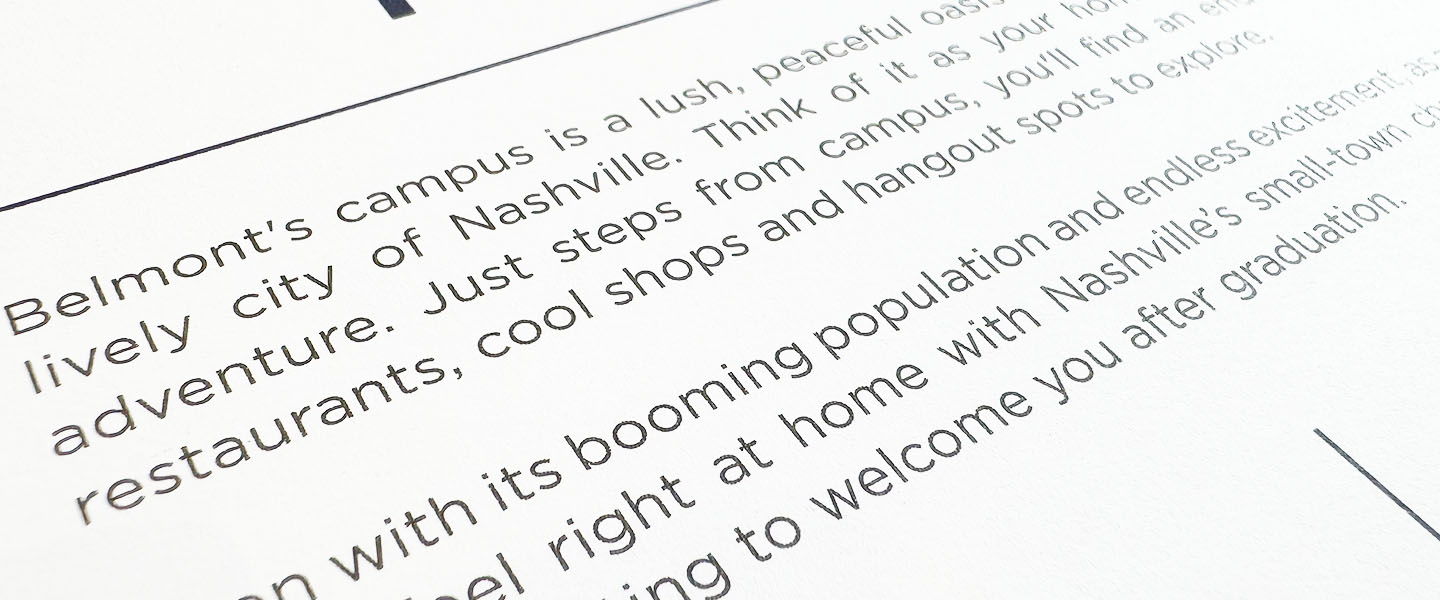 Belmont's campus is a lush, peaceful oasis
lively city of Nashville. Think of it as your
adventure. Just steps from campus, you'll find an
restaurants, cool shops and hangout spots to explore.
with its booming population and endless excitement, as
right at home with Nashville's small-town
to welcome you after graduation.